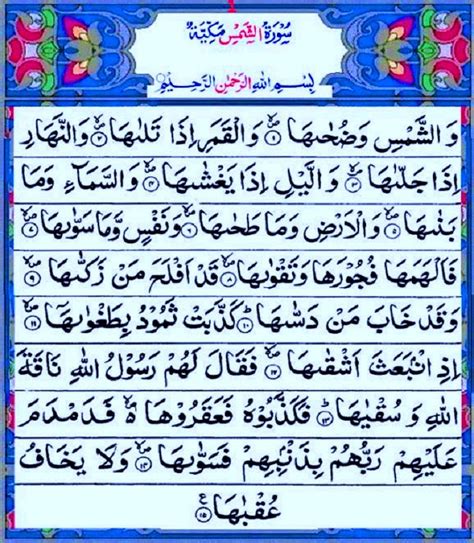 1
سُوْرَةُ الشَّمْسِ مَكِّيَّةٌ
بِسْمِ اللّٰهِ الرَّحْمٰنِ الرَّحِيْمِ
وَ الشَّمْسِ وَضُحٰىهَا ۪ۙ﴿۱﴾ وَ الْقَمَرِ اِذَا تَلٰىهَا ۪ۙ﴿۲﴾ وَالنَّهَارِ
اِذَا جَلّٰىهَا ۪ۙ﴿۳﴾ وَ الَّيْلِ اِذَا يَغْشٰىهَا ۪ۙ﴿۴﴾ وَ السَّمَآءِ وَمَا
بَنٰىهَا ۪ۙ﴿۵﴾ وَ الْاَرْضِ وَمَا طَحٰىهَا ۪ۙ﴿۶﴾ وَنَفْسٍ وَّمَا سَوّٰىهَا ۪ۙ﴿۷﴾
فَاَلْهَمَهَا فُجُوْرَهَا وَتَقْوٰىهَا ۪ۙ﴿۸﴾ قَدْ اَفْلَحَ مَنْ زَكّٰىهَا ۪ۙ﴿۹﴾
وَقَدْ خَابَ مَنْ دَسّٰىهَا ؕ﴿۱۰﴾ كَذَّبَتْ ثَمُوْدُ بِطَغْوٰىهَاۤ ۪ۙ﴿۱۱﴾
اِذِ انْۢبَعَثَ اَشْقٰىهَا ۪ۙ﴿۱۲﴾ فَقَالَ لَهُمْ رَسُوْلُ اللّٰهِ نَاقَةَ
اللّٰهِ وَ سُقْيٰهَا ؕ﴿۱۳﴾ فَكَذَّبُوْهُ فَعَقَرُوْهَا ۪ۙ۬ فَدَمْدَمَ
عَلَيْهِمْ رَبُّهُمْ بِذَنْۢبِهِمْ فَسَوّٰىهَا ۪ۙ﴿۱۴﴾ وَلَا يَخَافُ
عُقْبٰهَا ﴿۱۵﴾ ع